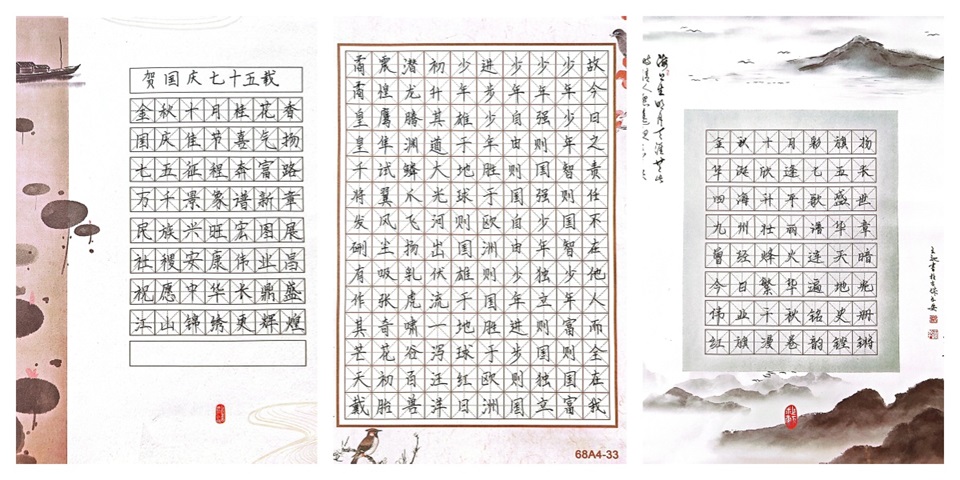 贺国庆七十五载
金秋十月桂花香
国庆佳节喜气扬
七五征程奔富路
万千景象谱新章
民族兴旺宏图展
社稷安康伟业昌
祝愿中华长鼎盛
江山锦绣更辉煌
故今日之责任不在他人而全在我
少年少年智则国智少年富则国富
少年强则国强少年独立则国独立
少年自由则国自由少年进步则国
进步少年胜于欧洲则国胜于欧洲
少年雄于地球则国雄于地球红日
初升其道大光河出伏流一泻汪洋
潜龙腾渊鳞爪飞扬乳虎啸谷百兽
震惶鹰隼试翼风尘吸张奇花初胎
矞矞皇皇干将发硎有作其芒天戴
68A4-33
海上生明月天涯共此
时情人怨遥夜
金秋十月彩旗扬
华诞欣逢七五长
四海升平歌盛世
九州壮丽谱华章
曾经烽火连天暗
今日繁华遍地光
伟业千秋铭史册
红旗漫卷韵铿锵